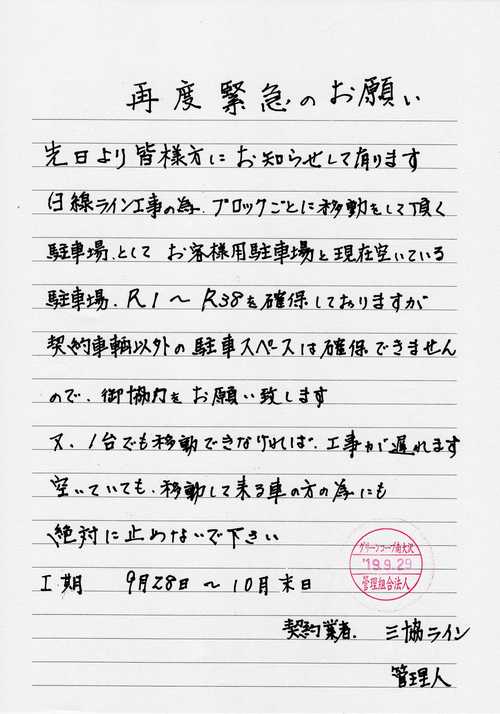 再度緊急のお願い
先日より皆様方にお知らせして有ります
白線ライン工事の為、ブロックごとに移動をして頂く
駐車場、として お客様用駐車場と現在空いている
駐車場、R1〜R38を確保しておりますが
契約車輌以外の駐車スペースは確保できません
ので、御協力をお願い致します
又、1台でも移動できなければ、工事が遅れます
空いていても、移動して来る車の方の為にも
絶対に止めないで下さい
グリーンコープ南大沢
'19.9.29
管理組合法人
工期 9月28日〜10月末日
契約業者. 三協ライン
管理人